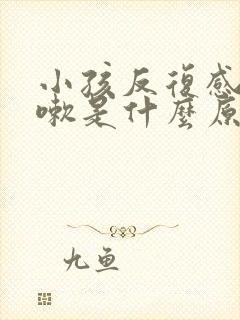 小孩反復感
嗽是什麼原
九鱼